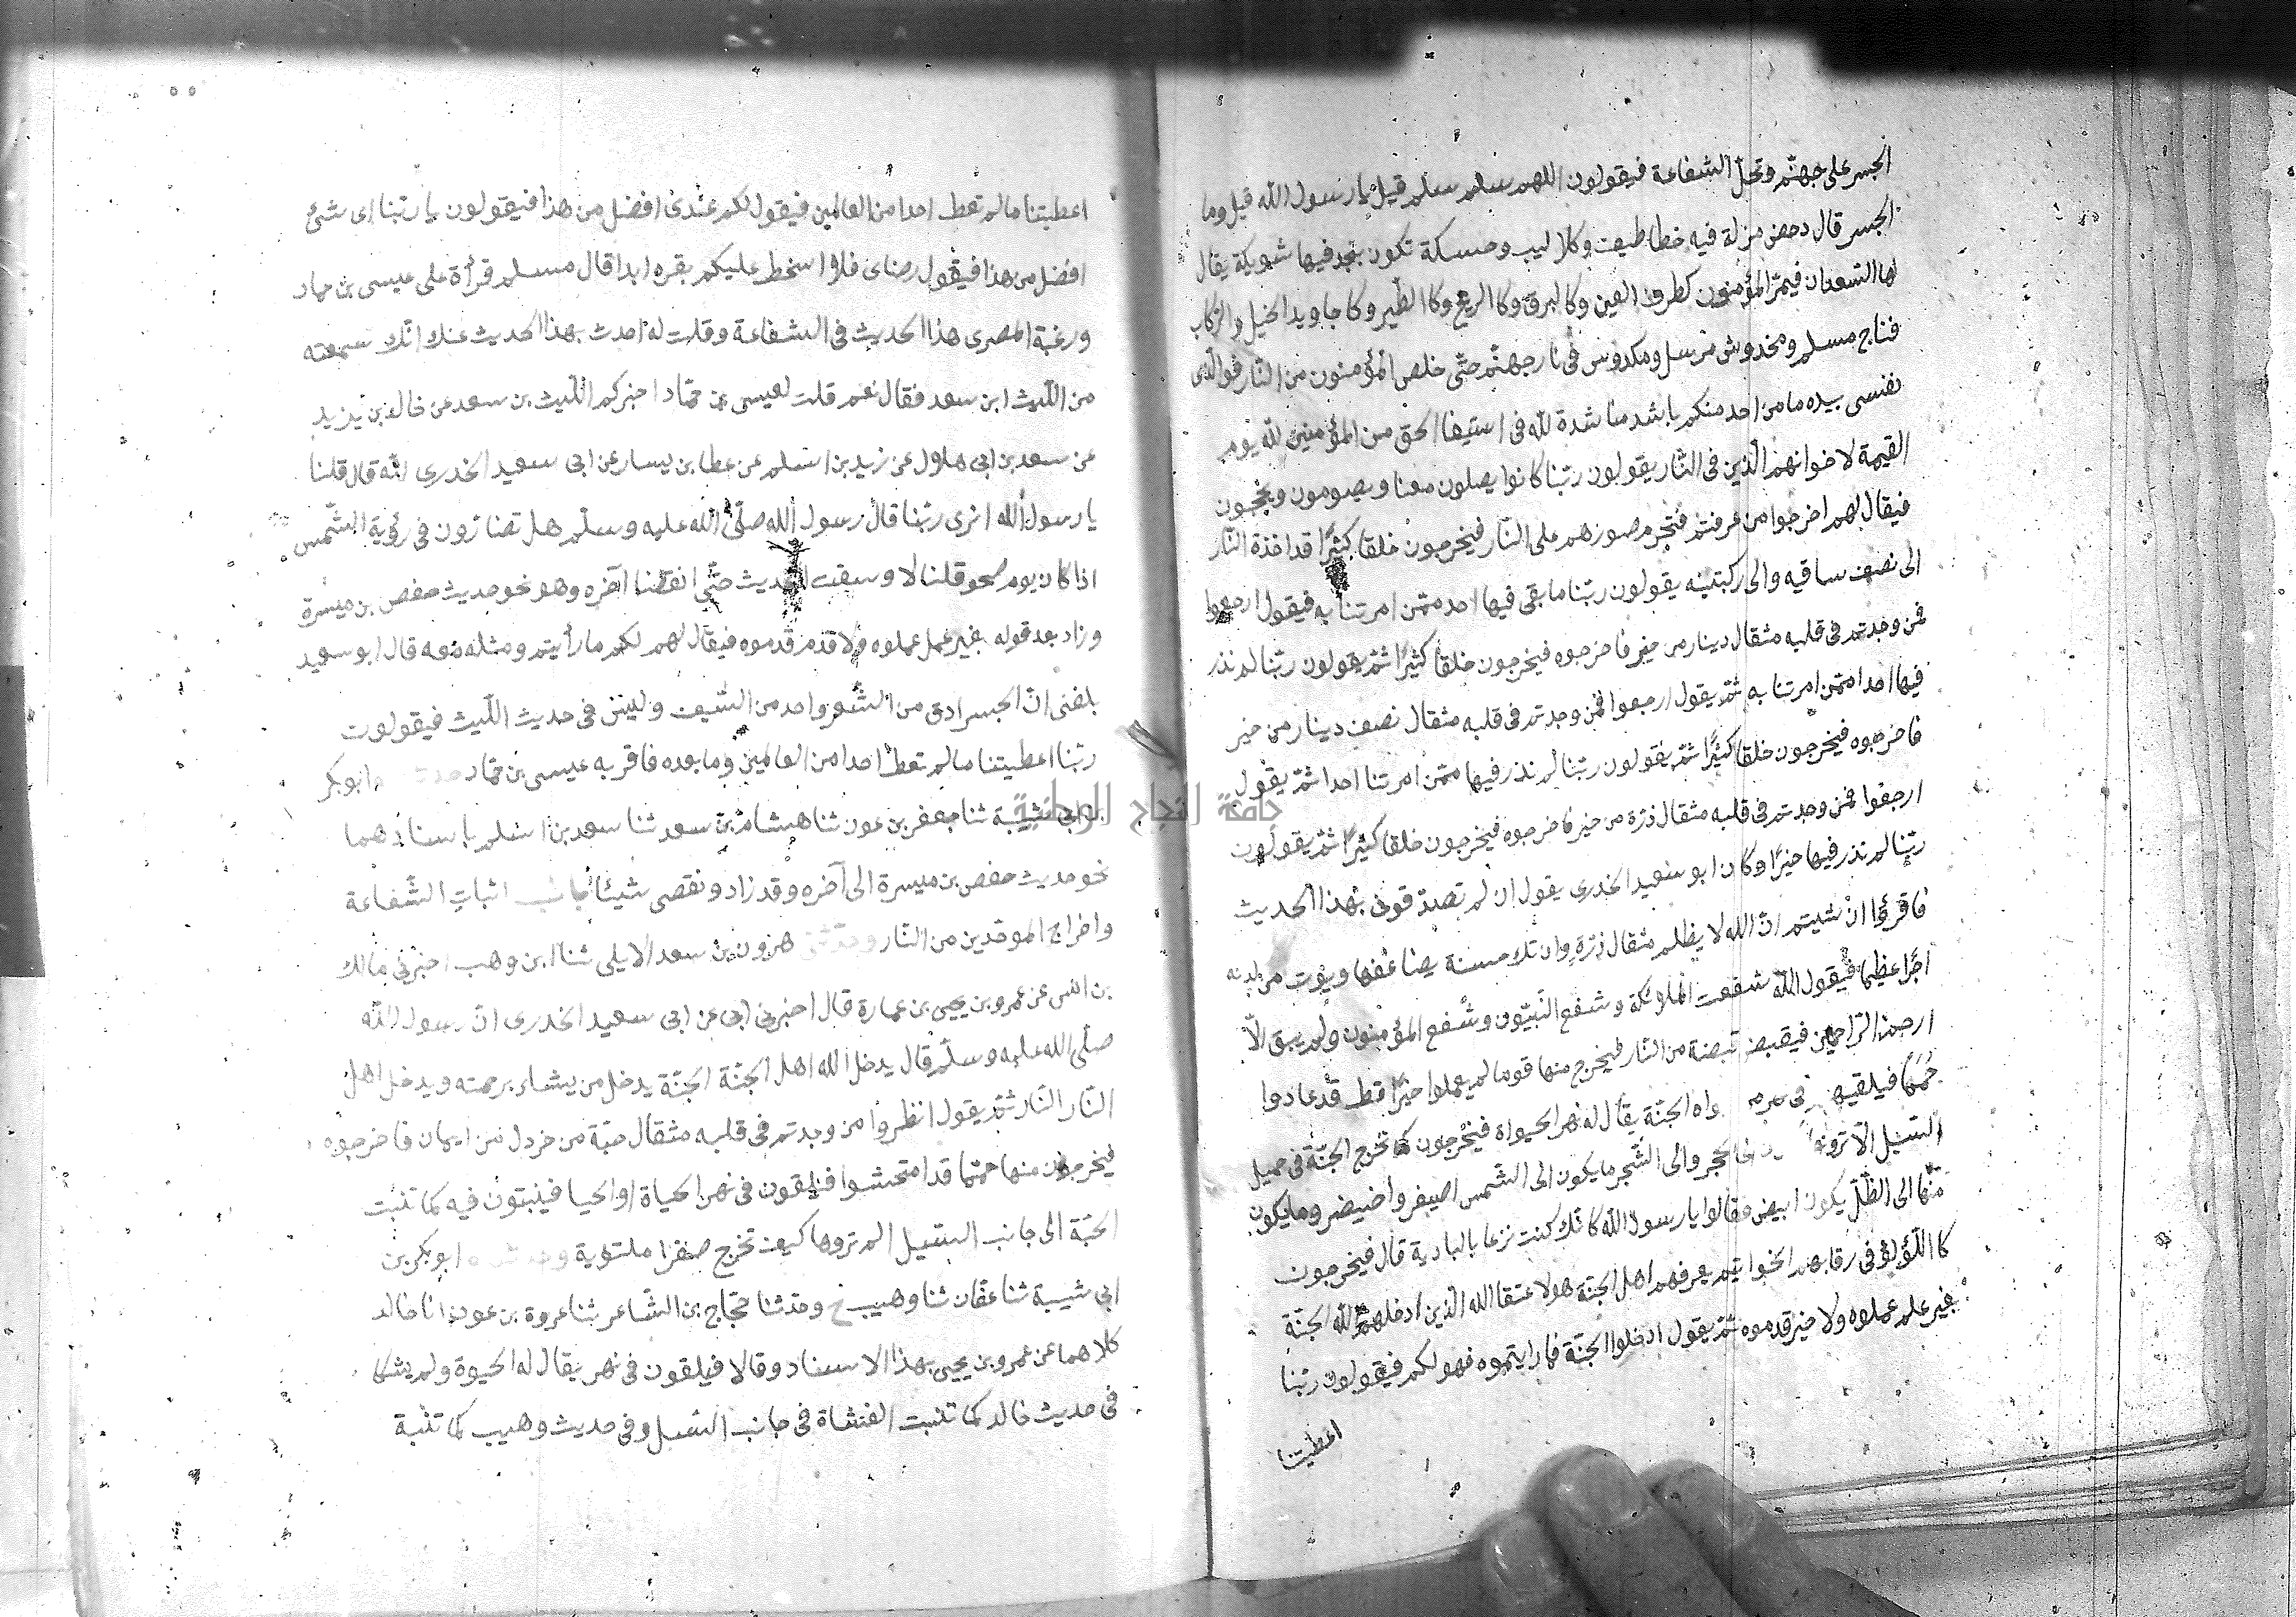 الجسر على جهنّم وتحلّ الشفاعة فيقولون اللهم سلم سلم قيل يا رسول الله قيل وما
الجسر قال دحض مزلة فيه خطاطيف وكلاليب وحسكة تكون بنجد فيها شويكة يقال
لها السعدان فيمرّ المؤمنون كطرف العين وكالبرق وكالريح وكالطّير وكاجاويد الخيل والركاب
فناج مسلم ومخدوش مرسل ومكدوس فى نار جهنّم حتّى خلص المؤمنون من النّار فوالّذى
نفسى بيده ما من احد منكم باشد مناشدة لله فى استيفا الحق من المؤمنين لله يوم
القيمة لاخوانهم الّذين فى النّار يقولون ربّنا كانوا يصلون معنا ويصومون ويحجون
فيقال لهم اخرجوا من عرفتم فتحرم صورهم على النّار فيخرجون خلقا كثيرًا قد اخذة النّار
الى نصف ساقيه والى ركبتيه يقولون ربّنا ما بقى فيها احد ممّن امرتنا به فيقول ارجعوا
فمن وجدتم فى قلبه مثقال دينار من خير فاخرجوه فيخرجون خلقا كثيرًا ثمّ يقولون ربّنا لم نذر
فيها احدا ممّن امرتنا به ثمّ يقول ارجعوا فمن وجدتم فى قلبه مثقال نصف دينار من خير
فاخرجوه فيخرجون خلقا كثيرًا ثمّ يقولون ربّنا لم نذر فيها ممّن امرتنا احدا ثمّ يقول
ارجعوا فمن وجدتم فى قلبه مثقال ذرّة من خير فاخرجوه فيخرجون خلقا كثيرًا ثمّ يقولون
ربّنا لم نذر فيها خيرًا وكان ابو سعيد الخدرى يقول ان لم تصدقونى بهذا الحديث
فاقرؤا ان شيتم انّ الله لا يظلم مثقال ذرّة وان تك حسنة يضاعفها ويؤت من لدنه
اجرًا عظيما فيقول الله شفعت الملائكة وشفع النّبيّون وشفع المؤمنون ولم يبق الّا
ارحم الرّاحمين فيقبض قبضة من النّار فيخرج منها قوما لم يعملوا خيرًا قطّ قد عادوا
حُمَمًا فيلقيهم فى الجنّة يقال له نهر الحيواة فيخرجون كما تخرج الحبّة فى حميل
السّيل الا ترونها الحجر والى الشّجر ما يكون الى الشّمس اصيفر واخيضر وما يكون
منها الى الظّلّ يكون ابيض فقالوا يا رسول الله كانّك كنت ترعا بالبادية قال فيخرجون
كاللّؤلؤ فى رقابهم الخواتيم يعرفهم اهل الجنّة هولا عتقا الله الّذين ادخلهم الله الجنّة
بغير علم عملوه ولا خير قدموه ثمّ يقول ادخلوا الجنّة فما رايتموه فهو لكم فيقولون ربّنا
اعطيتنا
اعطيتنا ما لم تعط احدا من العالمين فيقول لكم عندى افضل من هذا فيقولون يا ربّنا اى شئ
افضل من هذا فيقول رضاى فلا اسخط عليكم بعده ابدا قال مسلم قرأة على عيسى بن حماد
ورغبة المصرى هذا الحديث فى الشفاعة وقلت له احدث بهذا الحديث عنك انّك سمعته
من اللّيث ابن سعد فقال نعم قلت لعيسى بن حمّاد اخبركم اللّيث بن سعد عن خالد بن يزيد
عن سعد بن ابى هلال عن زيد بن اسلم عن عطا بن يسار عن ابى سعيد الخدرى انّه قال قلنا
يا رسول الله انرى ربّنا قال رسول الله صلّى الله عليه وسلّم هل تضارّون فى رؤية الشّمس
اذا كان يوم صحو قلنا لا وسقت الحديث حتّى انقضا آخره وهو نحو حديث حفص بن ميسرة
وزاد بعد قوله بغير عمل عملوه ولا قدم قدموه فيقال لهم لكم ما رأيتم ومثله معه قال ابو سعيد
بلغنى انّ الجسر ادق من الشّعر واحد من السّيف وليس فى حديث اللّيث فيقولون
ربّنا اعطيتنا ما لم تعط احدا من العالمين وما بعده فاقر به عيسى بن حمّاد ابو بكر
بن ابى شيبة ثنا جعفر بن عون ثنا هشام بن سعد ثنا سعد بن اسلم باسنادهما
نحو حديث حفص بن ميسرة الى آخره وقد زاد ونقص شيئًا باب اثبات الشّفاعة
واخراج الموحدين من النّار وحدّثنى هرون بن سعد الايلى ثنا ابن وهب اخبرنى مالك
بن انس عن عمرو بن يحيى بن عمارة قال اخبرنى ابى عن ابى سعيد الخدرى انّ رسول الله
صلّى الله عليه وسلّم قال يدخل الله اهل الجنّة الجنّة يدخل من يشاء برحمته ويدخل اهل
النّار النّار ثمّ يقول انظروا من وجدتم فى قلبه مثقال حبّة من خردل من ايمان فاخرجوه
فيخرجون منها حمما قد امتحشوا فيلقون فى نهر الحياة او الحيا فينبتون فيه كما تنبت
الحبّة الى جانب السّيل الم تروها كيف تخرج صفرا ملتوية ابو بكر بن
ابى شيبة ثنا عفّان ثنا وهيب ح وحدثنا حجّاج بن الشّاعر ثنا عروة بن عون انا خالد
كلاهما عن عمرو بن يحيى بهذا الاسناد وقالا فيلقون فى نهر يقال له الحيوة ولم يشكا
فى حديث خالد كما تنبت الغثاة فى جانب السّيل وفى حديث وهيب كما تنبة
جامعة النجاح الوطنية